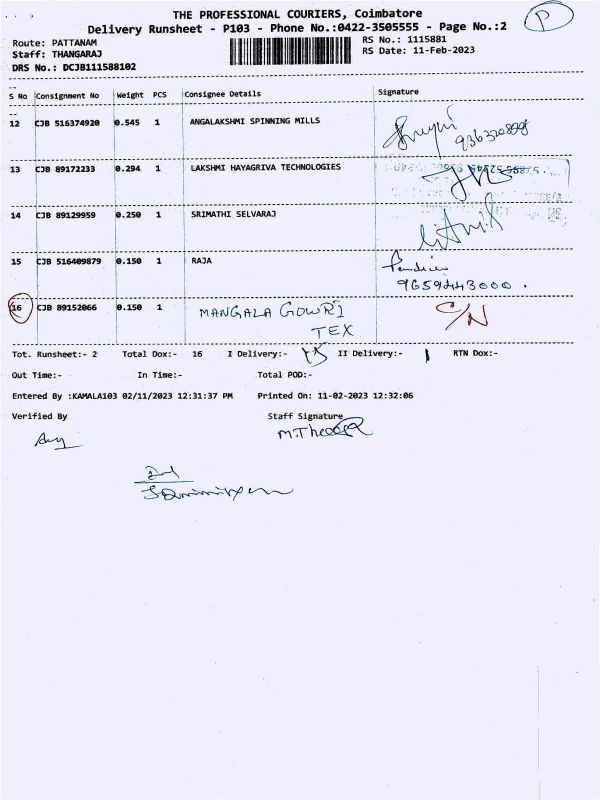 THE PROFESSIONAL COURIERS, Coimbatore
P
Delivery Runsheet - P103 - Phone No.:0422-3505555 - Page No.:2
Route: PATTANAM
RS No.: 1115881
Staff: THANGARAJ
RS Date: 11-Feb-2023
DRS No.: DCJB111588102
S No Consignment No Weight PCS Consignee Details Signature
12 CJB 516374920 0.545 1 ANGALAKSHMI SPINNING MILLS
13 CJB 89172233 0.294 1 LAKSHMI HAYAGRIVA TECHNOLOGIES
14 CJB 89129959 0.250 1 SRIMATHI SELVARAJ
15 CJB 516409879 0.150 1 RAJA
9659443000.
16 CJB 89152066 0.150 1 MANGALA GOWRI C/N
TEX
Tot. Runsheet:- 2 Total Dox:- 16 I Delivery:- 15 II Delivery:- 1 RTN Dox:-
Out Time:- In Time:- Total POD:-
Entered By :KAMALA103 02/11/2023 12:31:37 PM Printed On: 11-02-2023 12:32:06
Verified By Staff Signature